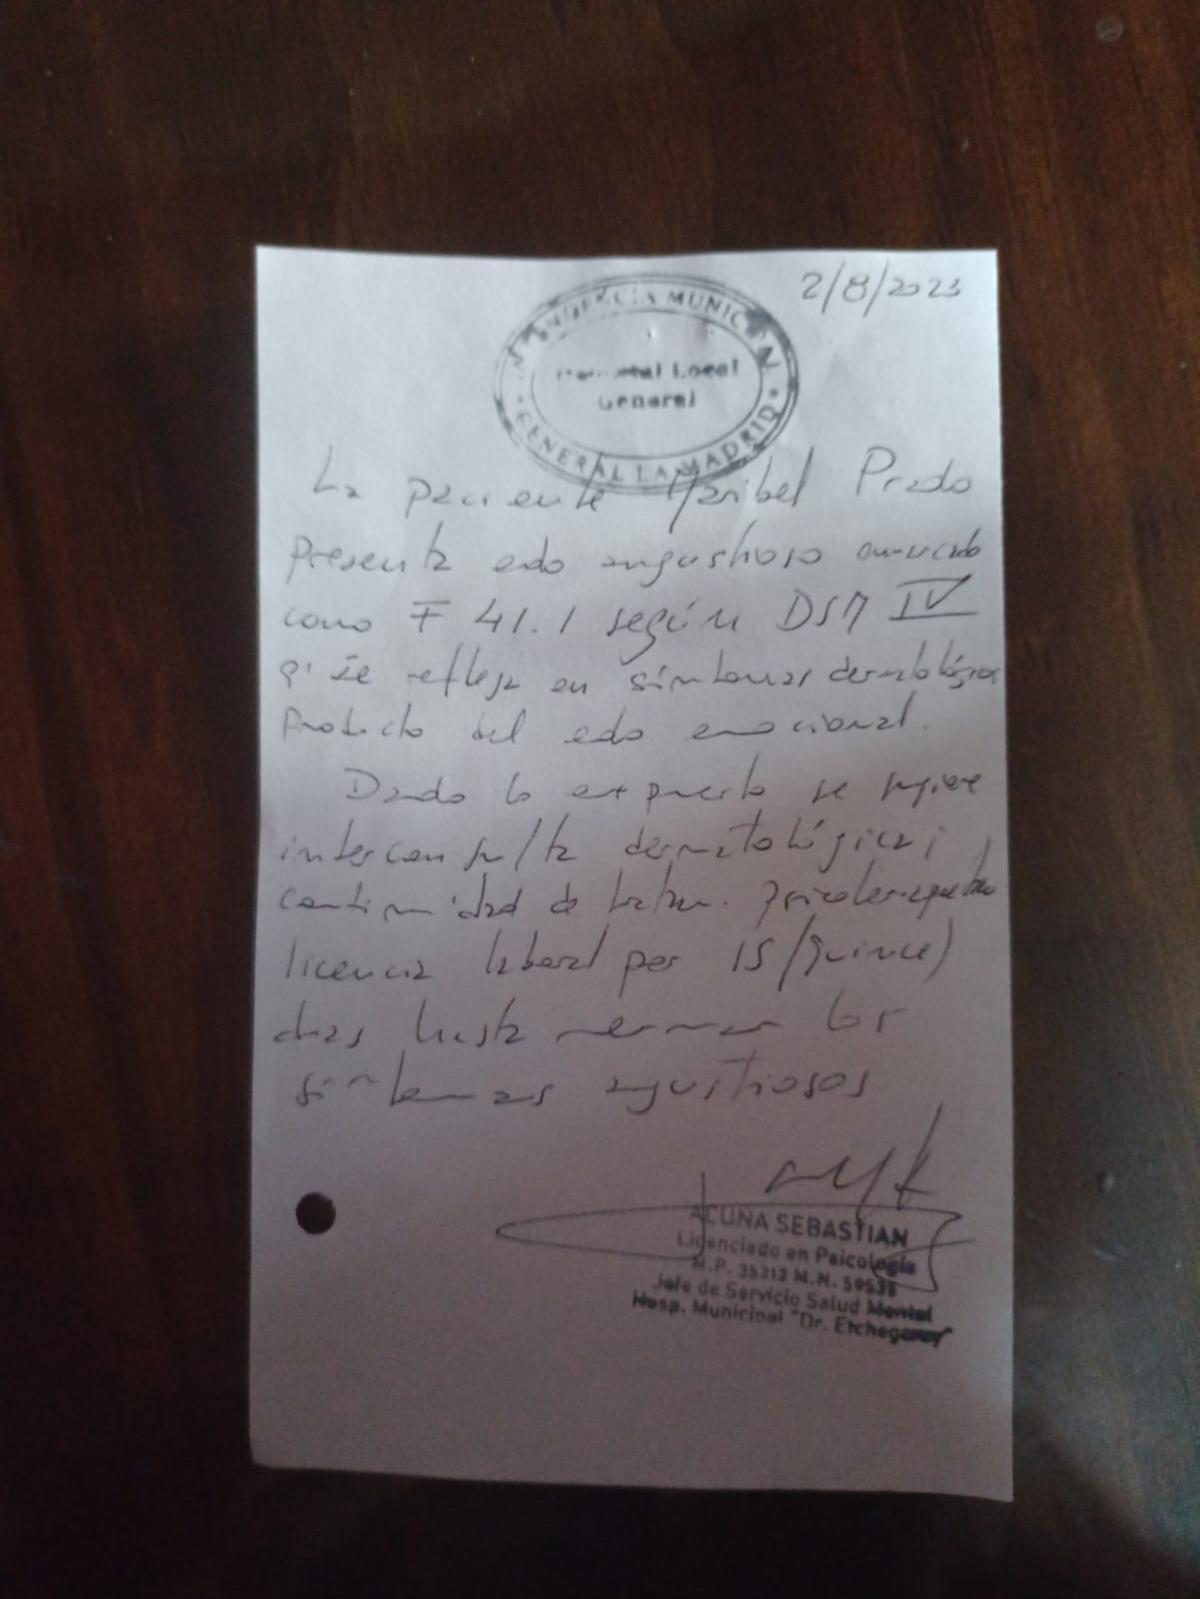 2/8/2023
INTENDENCIA MUNICIPAL
Hospital Local
General
GENERAL LA MADRID
La paciente Maribel Prado
presenta edo angustioso enunciado
como F 41.1 según DSM IV
q' se refleja en síntomas dermatológicos
producto del edo emocional.
Dado lo expuesto se sugiere
interconsulta dermatológica;
continuidad de tratam. psicoterapéutico
licencia laboral por 15 (quince)
días hasta mermar los
síntomas angustiosos
ACUÑA SEBASTIAN
Licenciado en Psicología
M.P. 35312 M.N. 59535
Jefe de Servicio Salud Mental
Hosp. Municipal "Dr. Etchegaray"